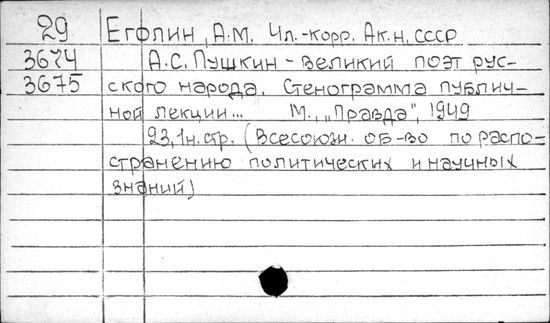 29 Еголин, А.М. Чл.-корр. Ак.н. СССР
3674 А.С. Пушкин - великий поэт рус-
3675 ского народа. Стенограмма публич-
ной лекции... М., „Правда", 1949
23,1н.стр. (Всесоюзн. об-во по распо-
странению политических и научных
знаний)